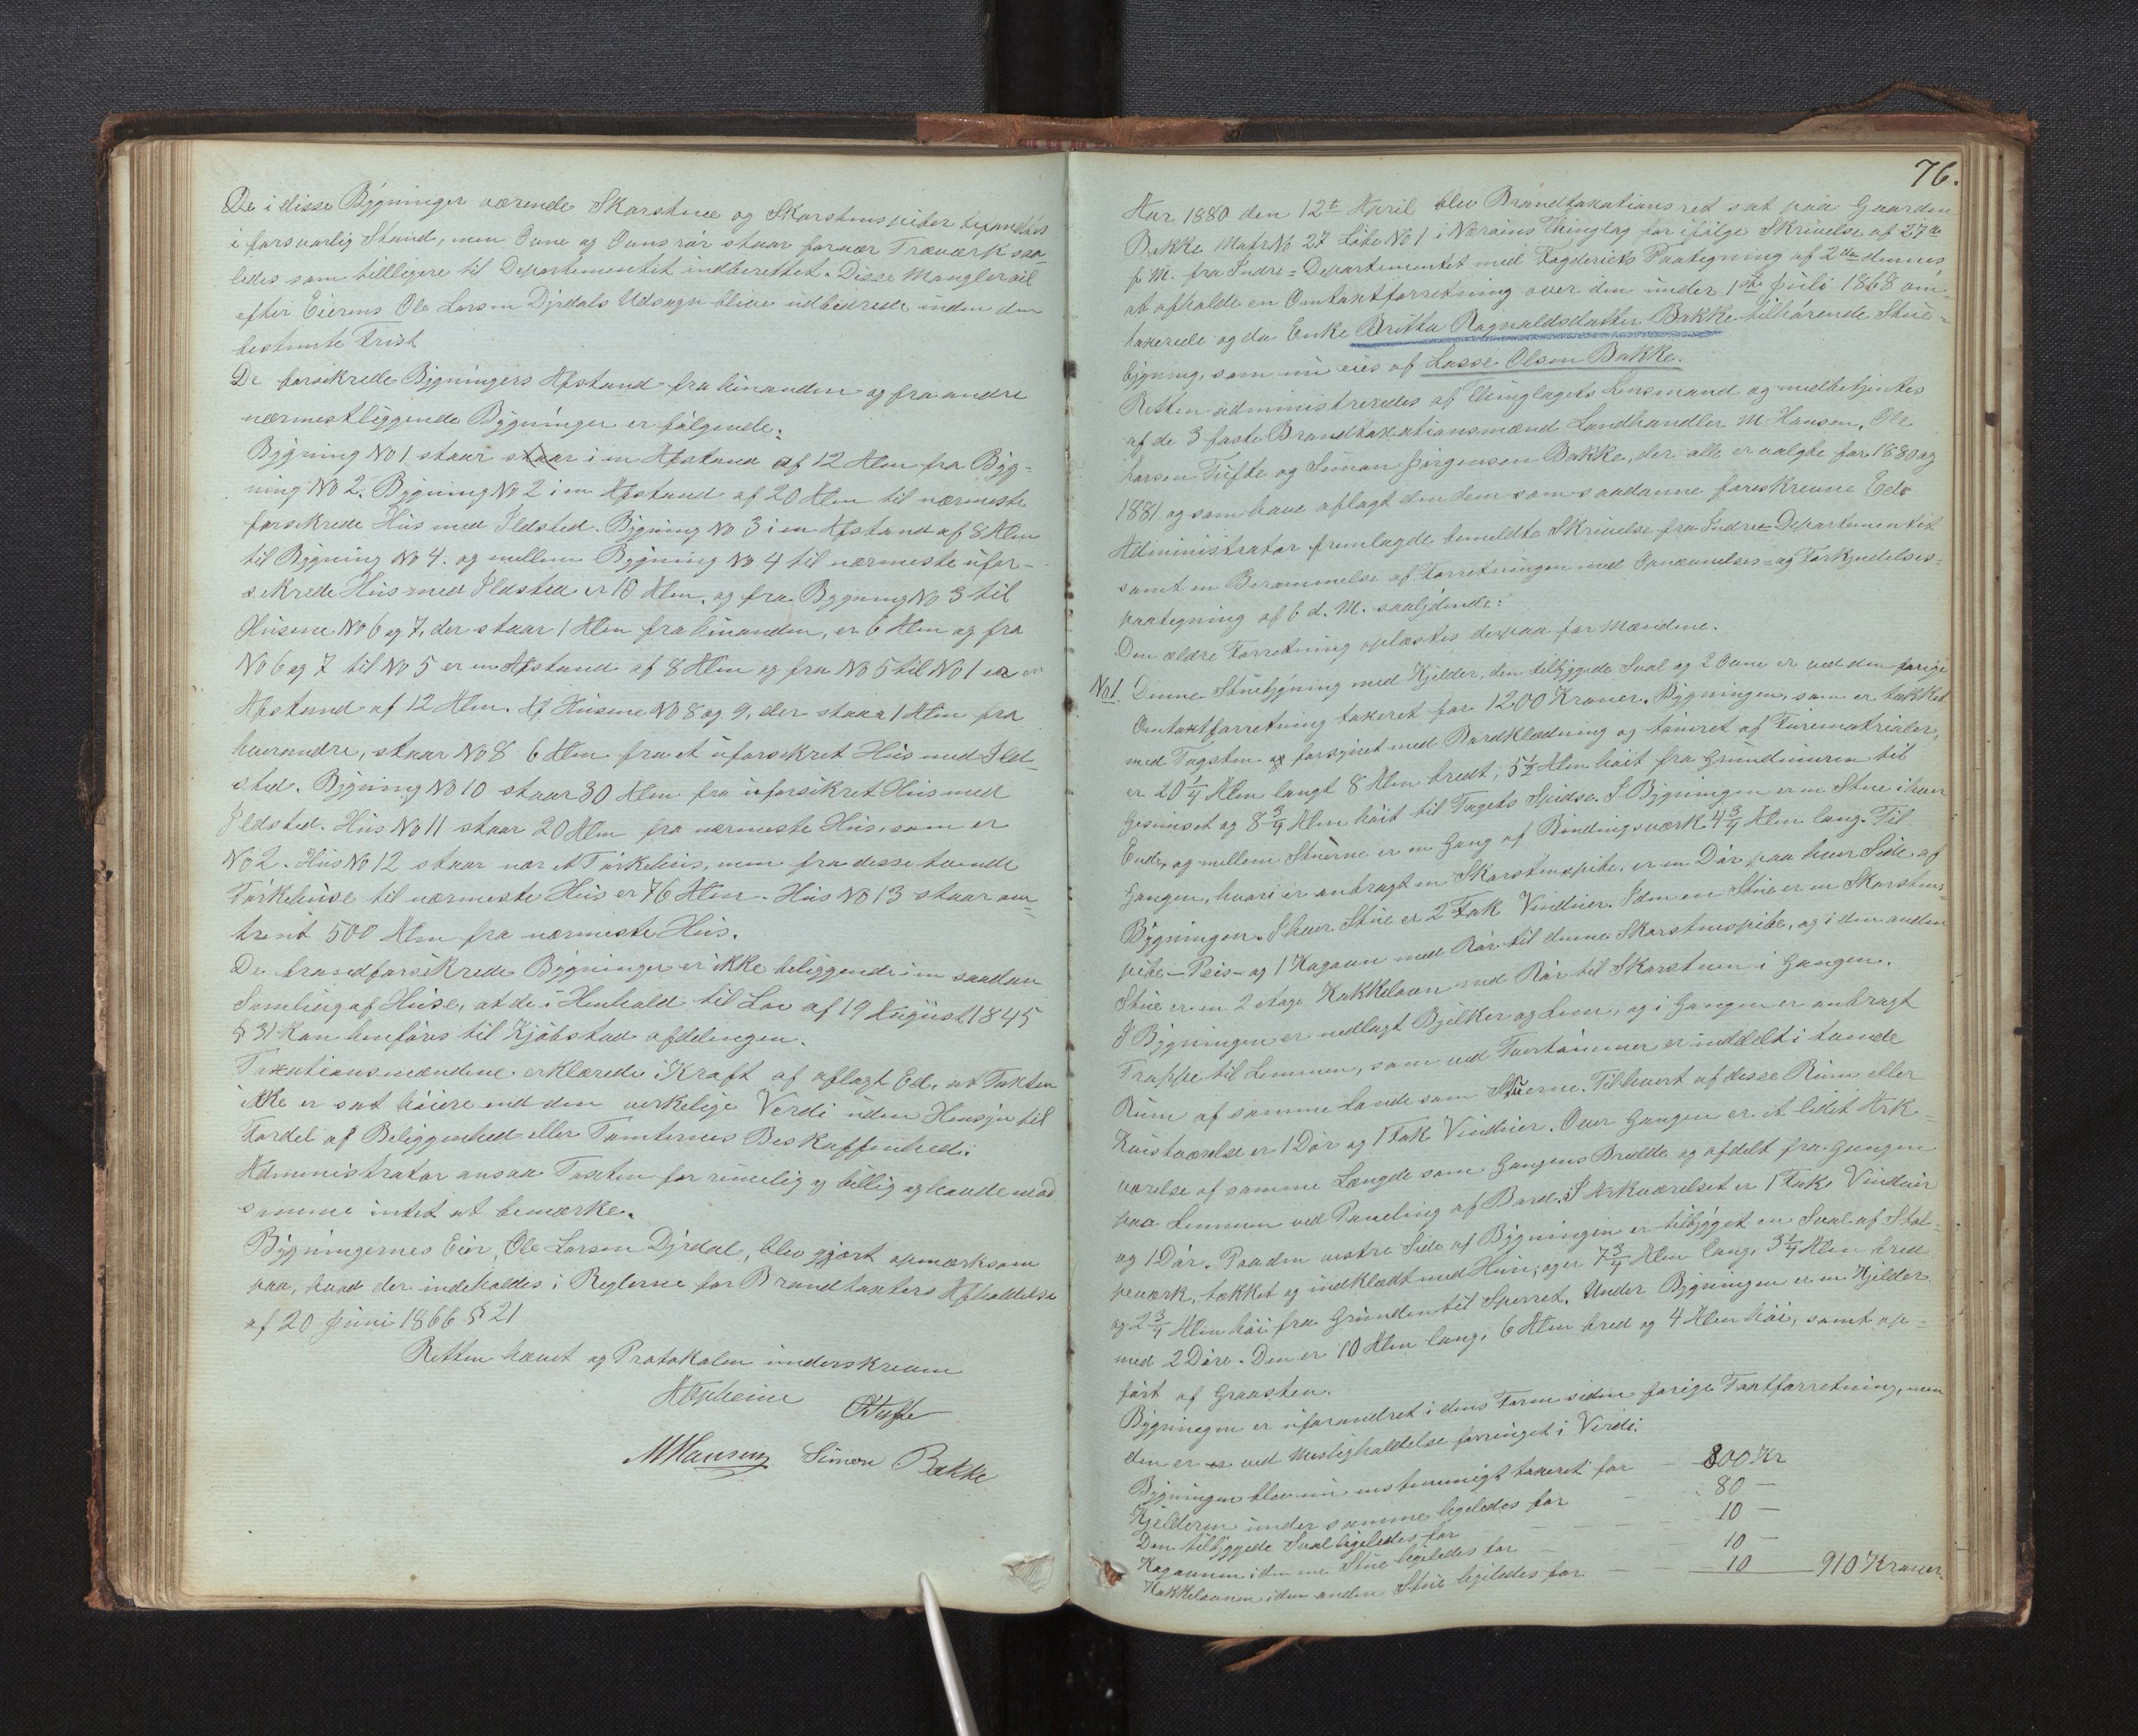 De i disse Bygninger værende Skorstene og Skorstenspiber befandtes
i forsvarlig Stand, men Ovne og Ovnsrör staar for nær Træværk saa-
ledes som tidligere til Departementet indberettet. Disse Mangler vil
efter Eierens Ole Larsen Dyrdals Udsagn blive udbedrede inden den
bestemte Frist
De forsikrede Bygningers Afstand fra hinanden og fra andre
nærmestliggende Bygninger er fölgende:
Bygning No 1 staar i en Afstand af 12 Alen fra Byg-
ning No 2. Bygning No 2 i en Afstand af 20 Alen til nærmeste
forsikrede Hus med Ildsted. Bygning No 3 i en Afstand af 8 Alen
til Bygning No 4. og mellem Bygning No 4 til nærmeste ufor-
sikrede Hus med Ildsted er 10 Alen, og fra Bygning No 3 til
Husene No 6 og 7, der staar 1 Alen fra hinanden, er 6 Alen og fra
No 6 og 7 til No 5 er en Afstand af 8 Alen og fra No 5 til No 1 er en
Afstand af 12 Alen. Af Husene No 8 og 9, der staar 1 Alen fra
hverandre, staar No 8 6 Alen fra et uforsikret Hus med Ild-
sted. Bygning No 10 staar 30 Alen fra uforsikret Hus med
Ildsted. Hus No 11 staar 20 Alen fra nærmeste Hus som er
No 2. Hus No 12 staar nær et Törkehus, men fra desse tvende
Törkehuse til nærmeste Hus er 76 Alen. Hus No 13 staar om-
trent 500 Alen fra nærmeste Hus.
De brandforsikrede Bygninger er ikke beliggende i en saadan
Samling af Huse, at de i Henhold til Lov af 19 August 1845
§ 31 kan henföres til Kjöbstad afdelingen.
Taxationsmændene erklærede i Kraft af aflagt Ed, at Taxten
ikke er sat höiere end den virkelige Verdi uden Hensyn til
Fordel af Beliggenhed eller Tomternes Beskaffenhed.
Administrator ansaa Taxten for rimelig og billig og havde mod
samme intet at bemærke.
Bygningernes Eier, Ole Larsen Dyrdal, blev gjort opmærksom
paa, hvad der indeholdes i Reglerne for Brandtaxters Afholdelse
af 20 Juni 1866 § 21
Retten hævet og Protokolen underskreven
Hopheim OLTufte
MHansen Simon Bakke
76.
Aar 1880 den 12te April blev Brandtaxationsret sat paa Gaarden
Bakke Matr No 27 Löbe No 1 i Næröens Thinglag for ifölge Skrivelse af 27de
f. M. fra Indre-Departementet med Fogderiets Paategning af 2den dennes
at afholde en Omtaxtforretning over den under 1ste Juli 1868 om-
taxerede og da Enke Britta Ragnvaldsdatter Bakke tilhörende Stue-
bygning, som nu eies af Lasse Olsen Bakke.
Retten administreredes af Thinglagets Lensmand og medbetjentes
af de 3 faste Brandtaxationsmænd Landhandler M Hansen, Ole
Larsen Tufte og Simon Jörgensen Bakke, der alle er valgte for 1880 og
1881 og som have aflagt den dem som saadanne foreskrevne Ed.
Administrator fremlagde bemeldte Skrivelse fra Indre-Departementet
samt en Berammelse af Forretningen med Opnævnelses- og Forkyndelses-
paategning af 6 d. M. saalydende:
Den ældre Forretning oplæstes derpaa for Mændene.
No 1. Denne Stuebygning med Kjelder, den tilbyggede Sval og 2 Ovne er ved den forige
Omtaxtforretning taxeret for 1200 Kroner. Bygningen, som er tækket
med Tagsten og forsynet med Bordklædning og tömret af Furematrialer,
er 20 1/4 Alen langt 8 Alen bredt, 5 1/2 Alen höit fra Grundmuren til
Gesimset og 8 3/4 Alen höit til Tagets Spidse. I Bygningen er en Stue i hver
Ende, og mellem Stuerne er en Gang af Bindingsværk 4 3/4 Alen lang. Til
Gangen, hvori er anbragt en Skorstenspibe, er en Dör paa hver Side af
Bygningen. I hver Stue er 2 Fak Vinduer. I den en Stue er en Skorstens-
pibe - Peis - og 1 Kagovn med Rör til denne Skorstenspibe, og i den anden
Stue er en 2 etage Kakkelovn med Rör til Skorstenen i Gangen.
I Bygningen er nedlagt Bjelker og Lem, og i Gangen er anbragt
Trappe til Lemmen, som ved Tvertömmer er inddelt i tvende
Rum af samme Lænde som Stuerne. Til hvert af disse Rum eller
Kvistværelse er 1 Dör og 1 Fak Vinduer. Over Gangen er et lidet Ark-
værelse af samme Længde som Gangens Bredde og afdelt fra Gangen
paa Lemmen ved Paneling af Bord. I Arkværelset er 1 Faks Vinduer
og 1 Dör. Paa den vestre Side af Bygningen er tilbygget en Sval af Stol-
peværk, tækket og indklædt med Hun, og er 7 3/4 Alen lang, 3 1/4 Alen bred
og 2 3/4 Alen höi fra Grunden til Sperret. Under Bygningen er en Kjelder
med 2 Döre. Den er 10 Alen lang, 6 Alen bred og 4 Alen höi, samt op-
fört af Graasten.
Bygningen er uforandret i dens Form siden forige Taxtforretning, men
den er ved Misligholdelse forringet i Verdi.
Bygningen blev nu enstemmigt taxeret for — 800 Kr
Kjelderen under samme ligeledes for — 80 —
Den tilbyggede Sval ligeledes for — 10 —
Kagovnen i den ene Stue ligeledes for — 10 —
Kakkelovnen i den anden Stue ligeledes for — 10 — 910 Kroner.